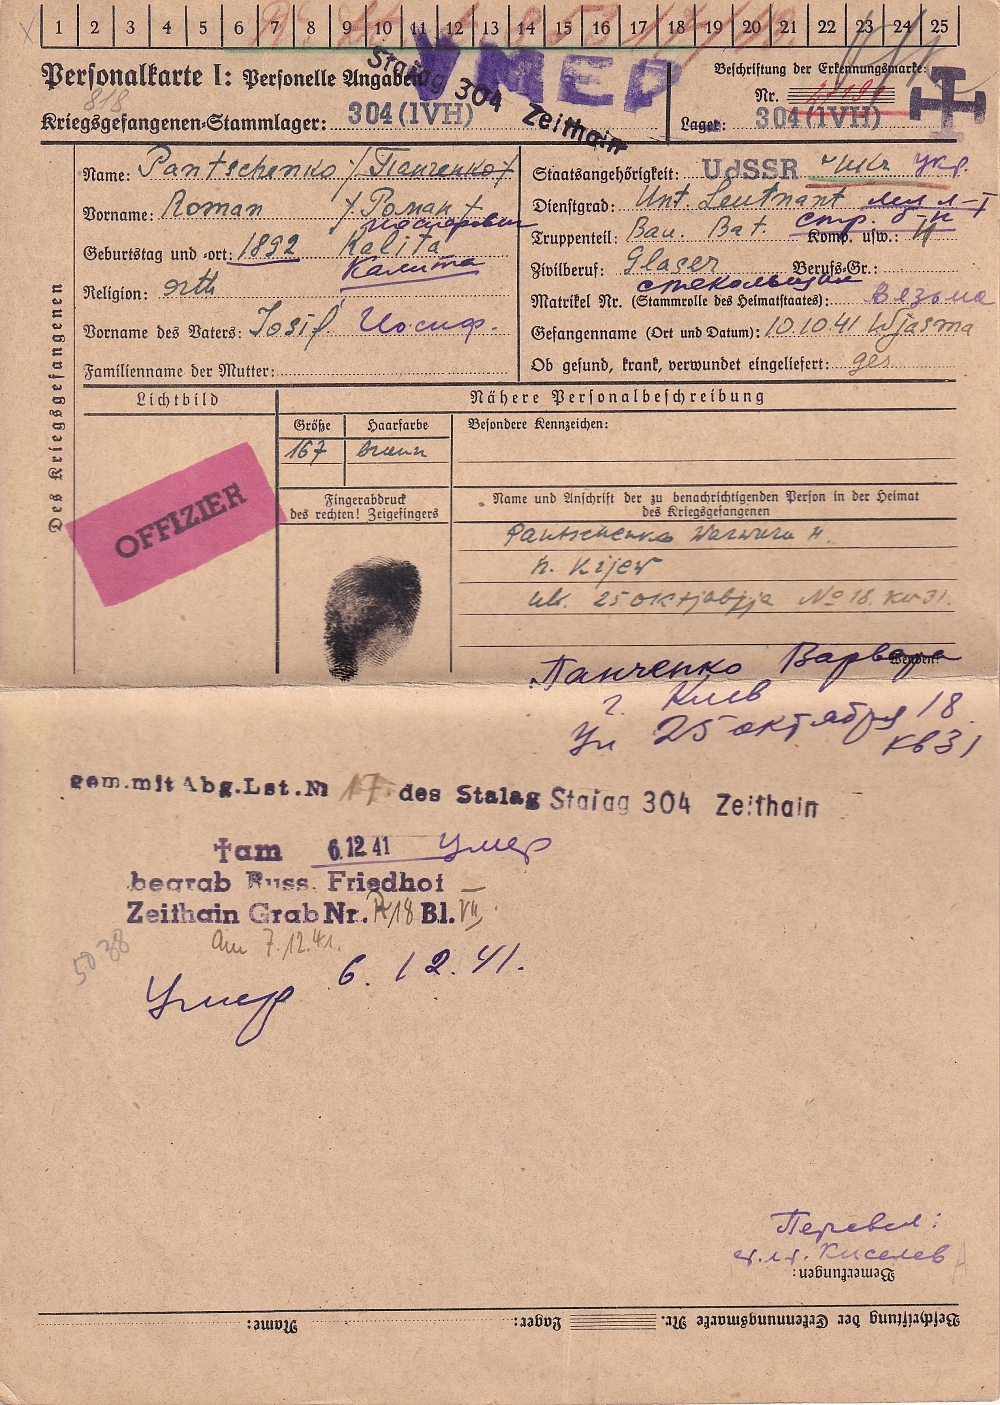 1 2 3 4 5 6 7 8 9 10 11 12 13 14 15 16 17 18 19 20 21 22 23 24 25
Personalkarte I: Personelle Angaben
УМЕР
Stalag 304 Zeithain
Beschriftung der Erkennungsmarke:
Nr.
818
Kriegsgefangenen-Stammlager: 304 (IVH)
Lager: 304 (IVH)
Des Kriegsgefangenen
Name: Pantschenko / Панченко
Vorname: Roman Роман
Иосифович
Geburtstag und -ort: 1892 Kalita
Калита
Religion: orth
Vorname des Vaters: Iosif Иосиф.
Familienname der Mutter:
Staatsangehörigkeit: UdSSR Ukr укр.
Dienstgrad: Unt. Leutnant мл л-т
Truppenteil: Bau. Bat. стр. б-н Komp. usw.:
Zivilberuf: Glaser Berufs-Gr.:
стекольщик
Matrikel Nr. (Stammrolle des Heimatstaates): Вязьма
Gefangenname (Ort und Datum): 10.10.41 Wjasma
Ob gesund, krank, verwundet eingeliefert: ges.
Lichtbild
OFFIZIER
Nähere Personalbeschreibung
Größe Haarfarbe Besondere Kennzeichen:
167 braun
Fingerabdruck
des rechten! Zeigefingers
Name und Anschrift der zu benachrichtigenden Person in der Heimat
des Kriegsgefangenen
Pantschenko Warwara H.
h. Kijew
Ul. 25 Oktjabrja No 18. kw 31.
Wenden!
Панченко Варвара
г. Киев
Ул 25 октября 18
кв 31
gem. mit Abg. Lst. Nr 17 des Stalag Stalag 304 Zeithain
† am 6.12.41 умер
begrab Russ. Friedhof
Zeithain Grab Nr. R/18 Bl. VII
am 7.12.41.
5038
Умер 6.12.41.
Перевел:
ст. л-т. Киселев
Bemerkungen:
Beschriftung der Erkennungsmarke Nr. Lager: Name: